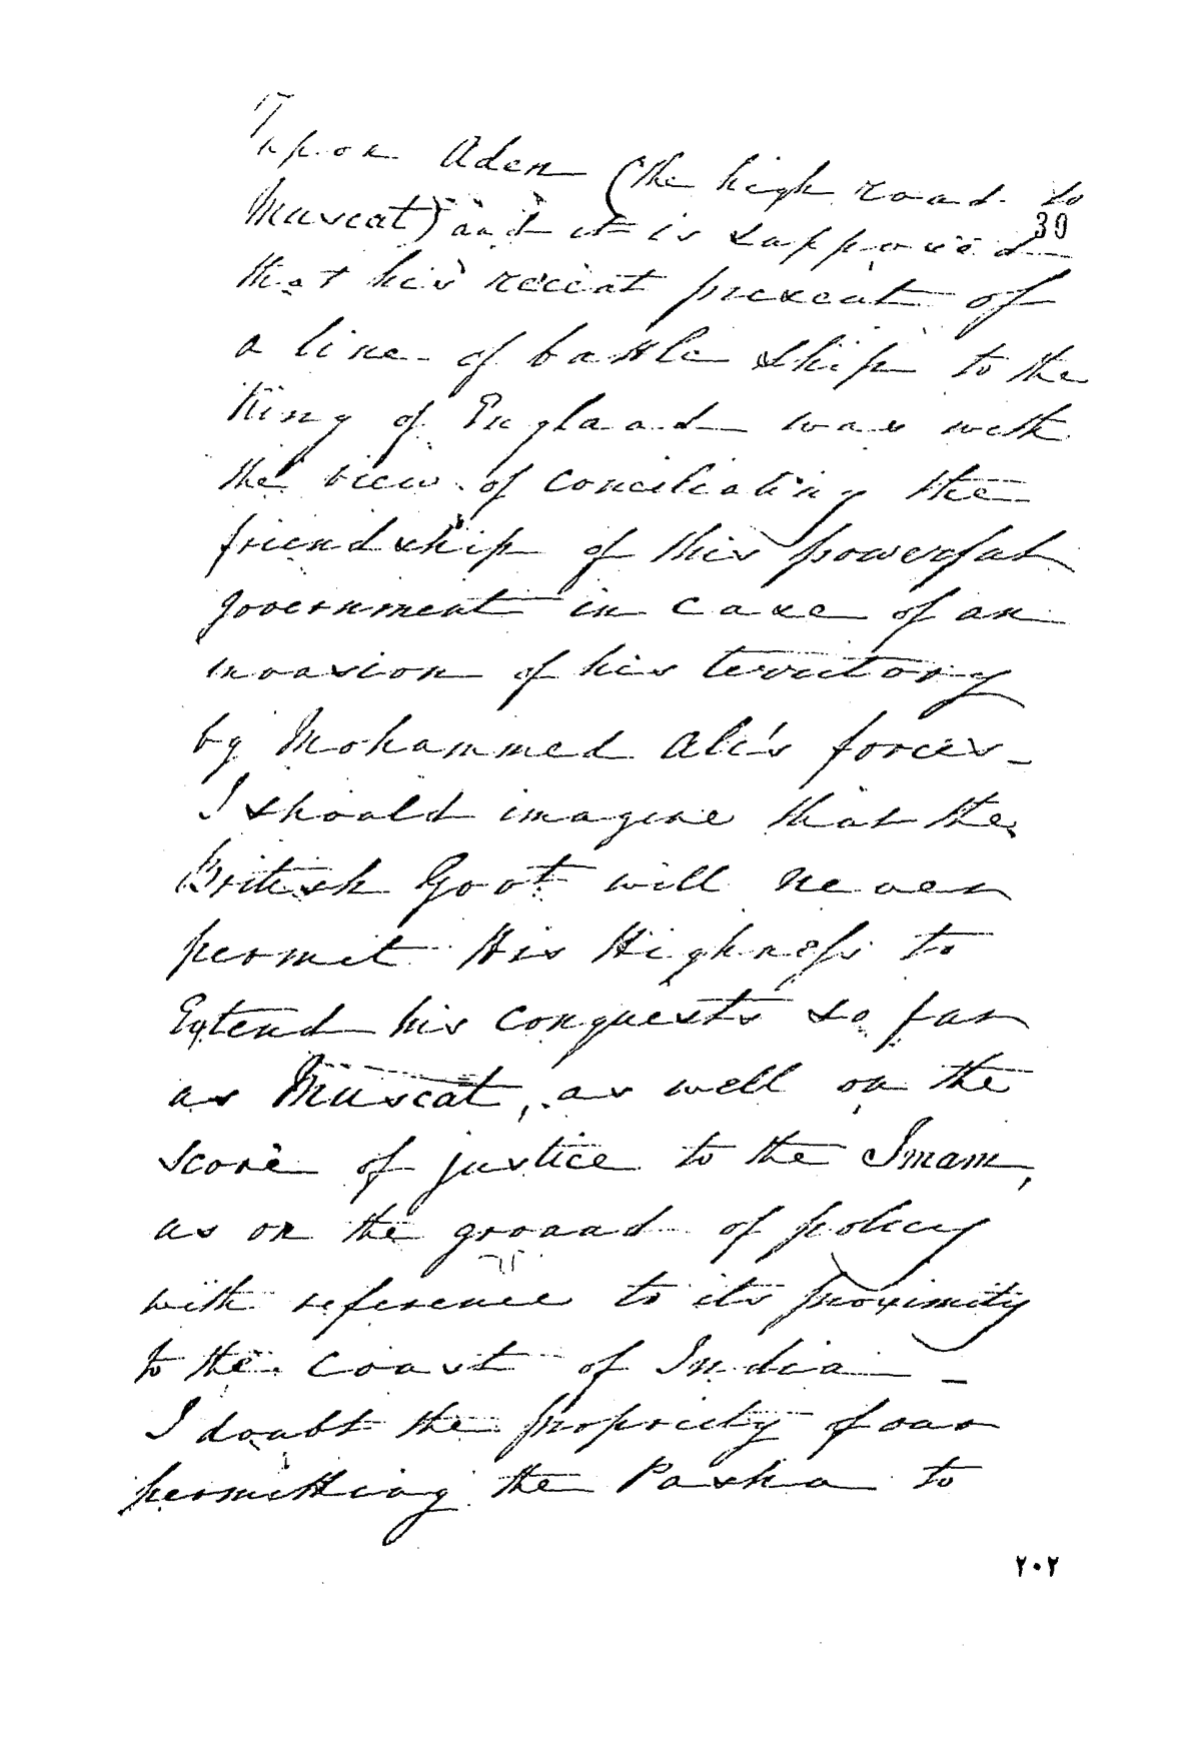 upon Aden (the high road to
Muscat) and it is supposed
39
that his recent present of
a line of battle ship to the
King of England was with
the view of conciliating the
friendship of this powerful
government in case of an
invasion of his territory
by Mohammed Ali's forces_
I should imagine that the
British Govt will never
permit His Highness to
Extend his conquests so far
as Muscat, as well on the
score of justice to the Imam,
as on the ground of policy
with reference to its proximity
to the Coast of India _
I doubt the propriety of our
permitting the Pasha to
٢٠٢